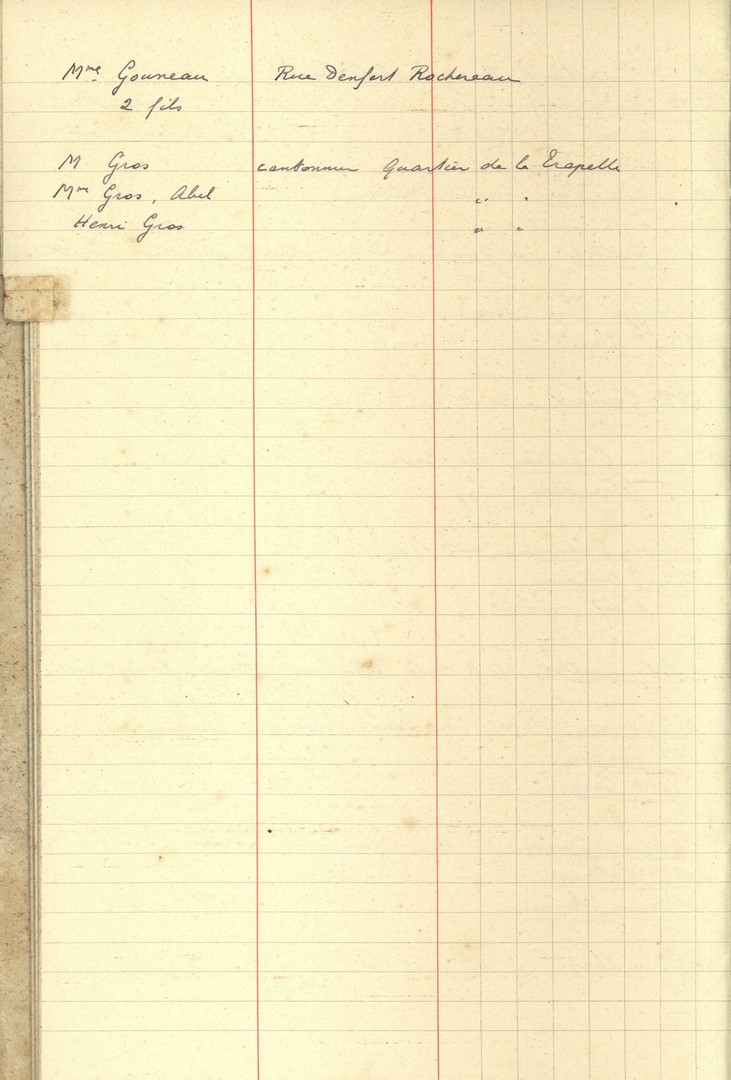 Mme Gouneau Rue Denfert Rochereau
2 fils
M Gros cantonnier Quartier de la
Mme Gros, Abel " "
Henri Gros " "